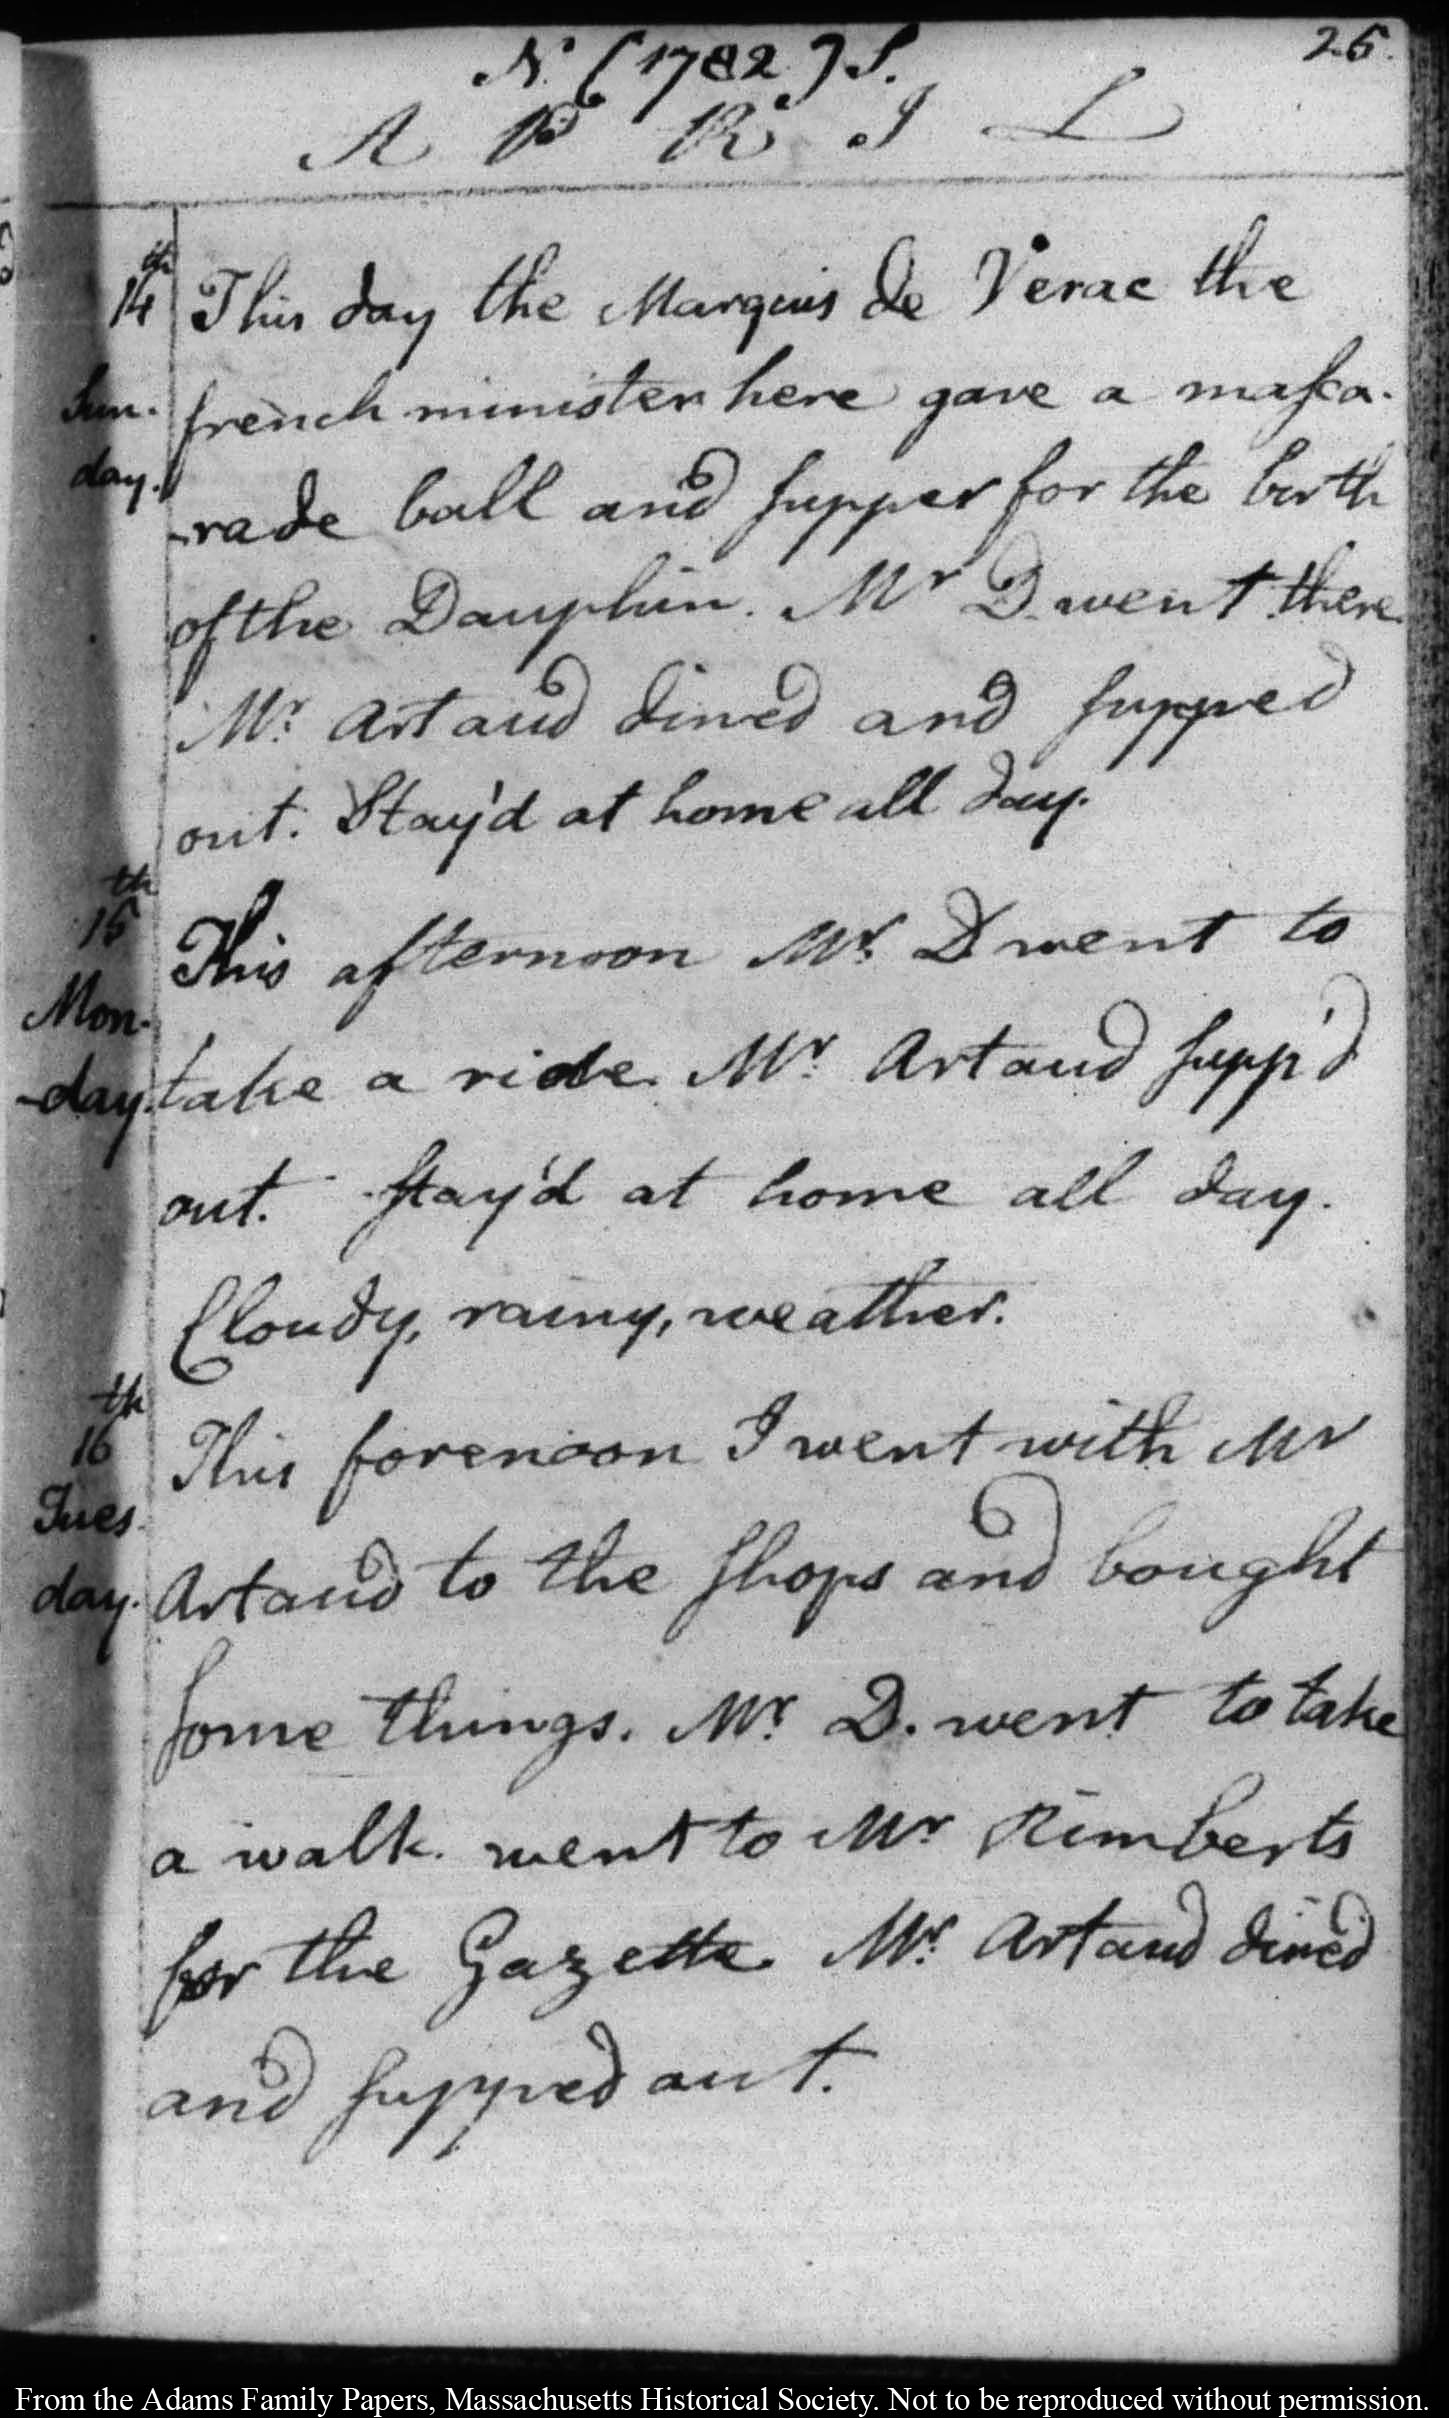 N. (1782) S.
25.
A P R I L
14th This day the Marquis de Verac the
Sun- french minister here gave a maſca-
day. -rade ball and ſupper for the birth
of the Dauphin. Mr D. went there.
Mr. Artaud dined and ſupped
out. Stay'd at home all day.
15th This afternoon Mr. D went to
Mon- take a ride. Mr. Artaud ſupp'd
-day. out. ſtay'd at home all day.
Cloudy, rainy, weather.
16th This forenoon I went with Mr
Tues- Artaud to the ſhops and bought
day. ſome things. Mr. D. went to take
a walk. went to Mr Rimberts
for the Gazette. Mr. Artaud dined
and ſupped out.
From the Adams Family Papers, Massachusetts Historical Society. Not to be reproduced without permission.